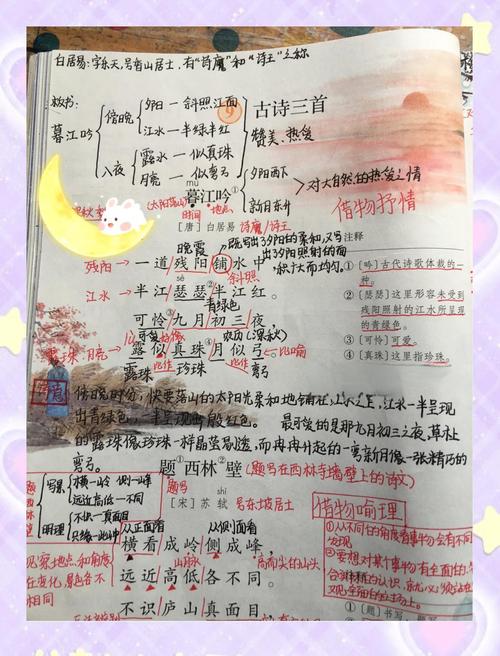 白居易:字乐天,号香山居士,有"诗魔"和"诗王"之称
板书:
暮江吟
傍晚
夕阳 — 斜照江面
江水 — 半绿半红
入夜
露水 — 似真珠
月亮 — 似弯弓
9
古诗三首
赞美、热爱
夕阳西下
新月东升
对大自然的热爱之情
借物抒情
mù
暮江吟①
(太阳落山)
时间
地点
[唐] 白居易
诗魔/诗王
晚霞
既写出了夕阳的柔和,又写
出了夕阳照射的面
积大而均匀。
斜照
残阳→
一道残阳铺水中
江水→
半江瑟瑟②半江红。
青绿色
可怜③九月初三夜
可爱
农历(深秋)
露珠 月亮→
露似真珠④月似弓。
比作
比作
比喻
露珠
珍珠
弯弓
注释
①〔吟〕古代诗歌体裁的一
种。
②〔瑟瑟〕这里形容未受到
残阳照射的江水所呈现
的青绿色。
③〔可怜〕可爱。
④〔真珠〕这里指珍珠。
傍晚时分,快要落山的太阳光柔和地铺在江水之上,江水一半呈现
出青绿色,一半呈现出殷红色。
最可爱的是那九月初三之夜,草木上
的露珠像珍珠一样晶莹剔透,而冉冉升起的一弯新月像一张精巧的
弯弓。
题西林壁
(题写在西林寺墙壁上的诗文)
题写
shì
[宋] 苏轼
号东坡居士
写景
横—岭 侧—峰
远近高低—不同
明理
不识—真面目
只缘—此山中
从正面看
从侧面看
横看成岭侧成峰,
高而尖的山头
远近高低各不同。
不识庐山真面目,
观察地点和角度
在变化,景色各不
相同
借物喻理
①从不同的角度看事物会有不同
发现。
②要想对某个事物有全面的、
〔题〕书写